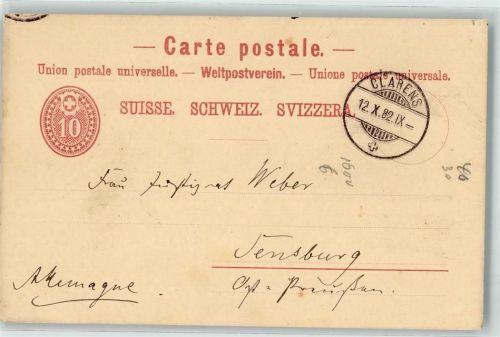 — Carte postale. —
Union postale universelle. — Weltpostverein. — Unione postale universale.
SUISSE. SCHWEIZ. SVIZZERA.
10
CLARENS
12.X.82.IX—
Frau Justizrat Weber
Sensburg
Allemagne
Ost-Preußen.